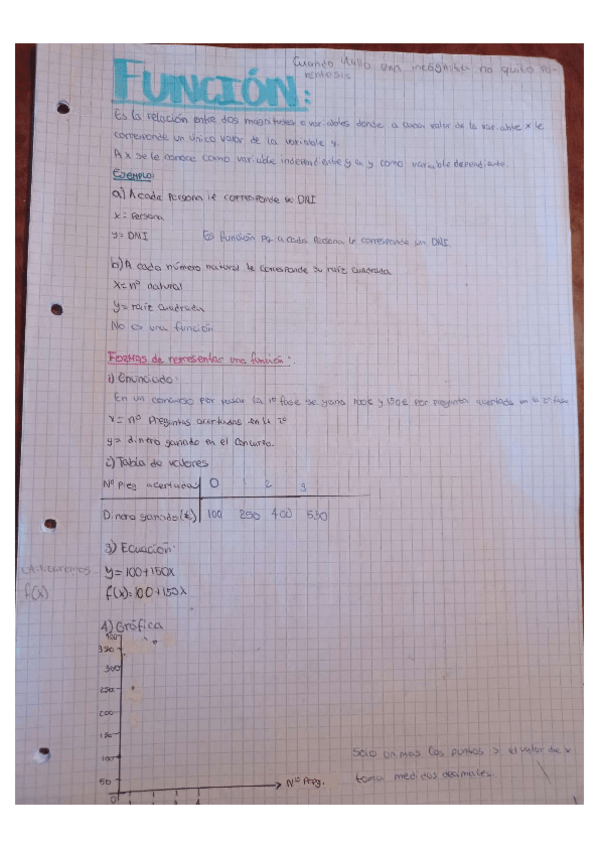 Cuando hallo una incógnita no quito pa-
réntesis
FUNCIÓN:
Es la relación entre dos magnitudes o variables donde a cada valor de la variable x le
corresponde un único valor de la variable y.
A x se le conoce como variable independiente y a y como variable dependiente.
EJEMPLO:
a) A cada persona le corresponde un DNI
x = Persona
y = DNI Es función pq a cada persona le corresponde un DNI
b) A cada número natural le corresponde su raíz cuadrada
X = nº natural
y = raíz cuadrada
No es una función
Formas de representar una función:
1) Enunciado:
En un concurso por pasar la 1ª fase se gana 100€ y 150€ por pregunta acertada en la 2ª fase
x = nº Preguntas acertadas en la 2ª
y = dinero ganado en el concurso.
2) Tabla de valores
Nº Preg acertadas 0 1 2 3
Dinero ganado (€) 100 250 400 550
3) Ecuación:
y = 100 + 150x
f(x)
f(x) = 100 + 150x
4) Gráfica
350
300
250
200
150
100
50
0
Nº Preg.
Solo unimos los puntos si el valor de x
toma medidas decimales.